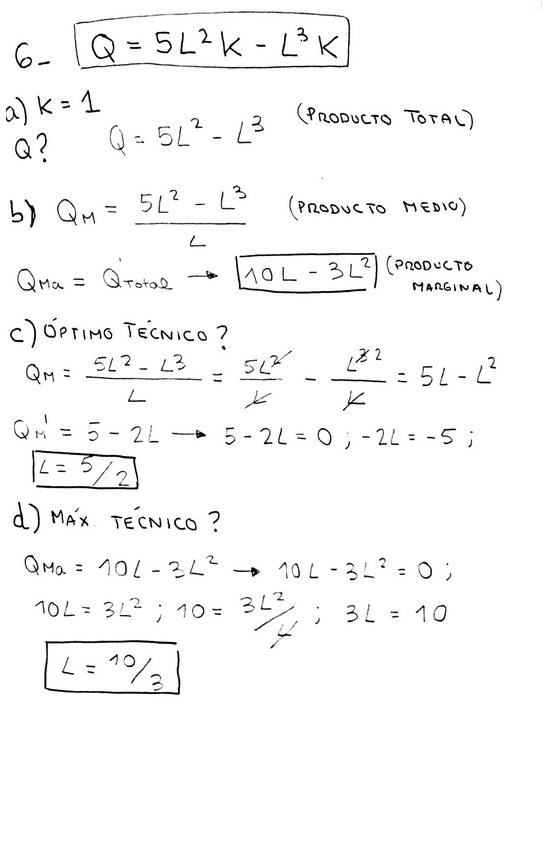 6- Q = 5L²K - L³K
a) K = 1
Q? Q = 5L² - L³ (PRODUCTO TOTAL)
b) QM = (5L² - L³) / L (PRODUCTO MEDIO)
QMa = Q'Total → 10L - 3L² (PRODUCTO MARGINAL)
c) ÓPTIMO TÉCNICO?
QM = (5L² - L³) / L = 5L² / L - L³ ² / L = 5L - L²
QM' = 5 - 2L → 5 - 2L = 0 ; -2L = -5 ;
L = 5/2
d) MÁX. TÉCNICO?
QMa = 10L - 3L² → 10L - 3L² = 0 ;
10L = 3L² ; 10 = 3L²/L ; 3L = 10
L = 10/3